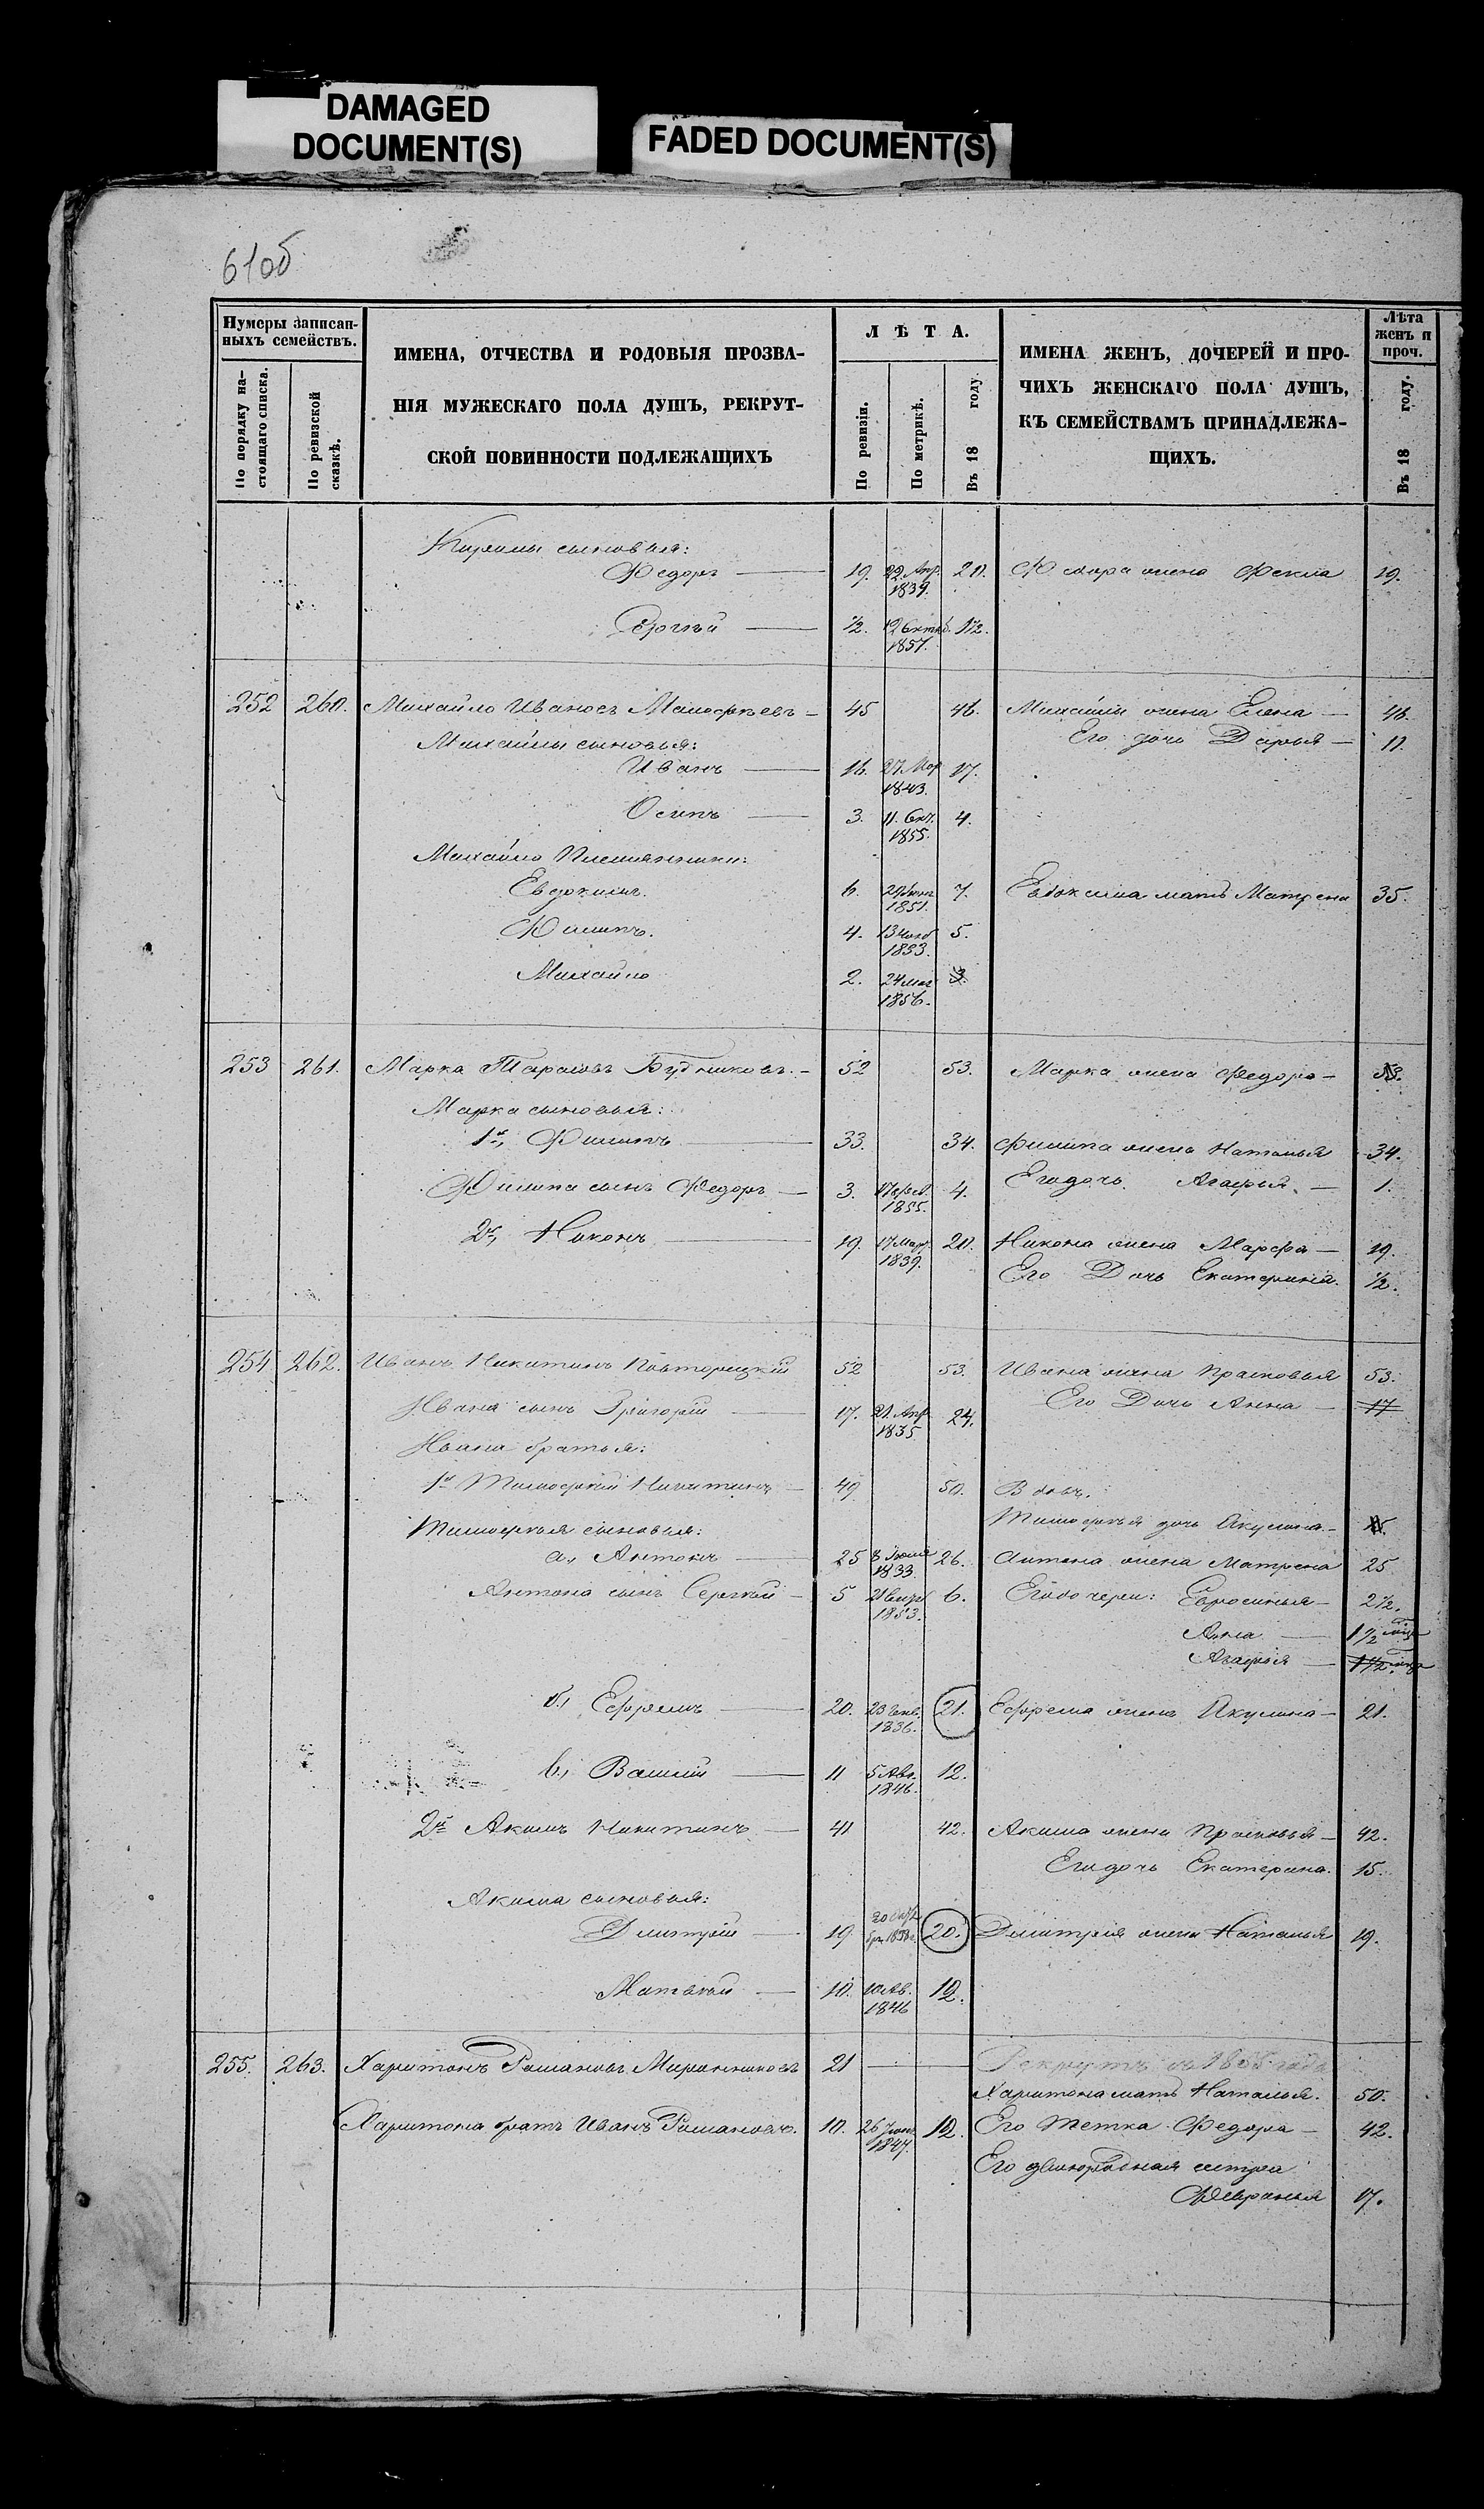 DAMAGED
DOCUMENT(S)
FADED DOCUMENT(S)
610б
Нумеры записан-
ныхъ семействъ.
По порядку на-
стоящаго списка.
По ревизской
сказкѣ.
ИМЕНА, ОТЧЕСТВА И РОДОВЫЯ ПРОЗВА-
НІЯ МУЖЕСКАГО ПОЛА ДУШЪ, РЕКРУТ-
СКОЙ ПОВИННОСТИ ПОДЛЕЖАЩИХЪ
ЛѢТА.
По ревизіи.
По метрикѣ.
Въ 18 году.
ИМЕНА ЖЕНЪ, ДОЧЕРЕЙ И ПРО-
ЧИХЪ ЖЕНСКАГО ПОЛА ДУШЪ,
КЪ СЕМЕЙСТВАМЪ ПРИНАДЛЕЖА-
ЩИХЪ.
Лѣта
женъ и
проч.
Въ 18 году.
сыновья:
Федоръ — 19. 22. Апр. 1839. 20. Федора жена Фекла 19.
Сергѣй — ½. 12 Октяб. 1857. 1½.
252 260. Михайло Ивановъ — 45 46. Михайлы жена Елена — 46.
Михайлы сыновья: Его дочь Дарья — 11.
Иванъ — 16. 27. Мар 1843. 17.
Осипъ — 3. 11. Окт. 1855. 4.
Михайло Племянники:
Евдокимъ. 6. 29 1851. 7. Евдокима мать Матрена 35.
Филипъ. 4. 13 Нояб 1853. 5.
Михайло 2. 24 1856. 3.
253 261. Марка Тарасовъ Будниковъ. — 52 53. Марка жена Федора —
Марка сыновья:
1й, Филипъ — 33. 34. Филипа жена Наталья 34.
Филипа сынъ Федоръ — 3. 17 фев. 1855. 4. Его дочь Агафья. — 1.
2й, Никонъ — 19. 17 Мар. 1839. 20. Никона жена Марфа — 19.
Его Дочь Екатерина. ½.
254 262. Иванъ Никитинъ 52 53. Ивана жена Прасковья 53.
Ивана сынъ Григорій — 17. 21. Апр 1835 24. Его Дочь Анна — 17
Ивана братья:
1й Тимофей Никитинъ — 49 50. Вдовъ.
Тимофѣя сыновья: Тимофѣя дочь Акулина —
а, Антонъ — 25 8 Іюля 1833. 26. Антона жена Матрена 25
Антона сынъ Сергѣй — 5 21 1853. 6. Его дочери: Евросинья — 2½.
Анна — 1½
Агафья — 1½
б, Ефремъ — 20. 23 Генв. 1836. 21. Ефрема жена Акулина — 21.
в, Василій — 11 5 Авг. 1846. 12.
2й Акимъ Никитинъ — 41 42. Акима жена Прасковья — 42.
Его дочь Екатерина. 15.
Акима сыновья:
Дмитрій — 19. 20 Октября 1838 г. 20. Дмитрія жена Наталья 19.
Матвѣй — 10. 1846 12.
255. 263. Харитонъ Романовъ 21 — Рекрутъ
Харитона мать Наталья. 50.
Харитона братъ Иванъ Романовъ. 10. 26 1847. 12. Его Тетка Федора — 42.
Его двоюродная сестра
17.